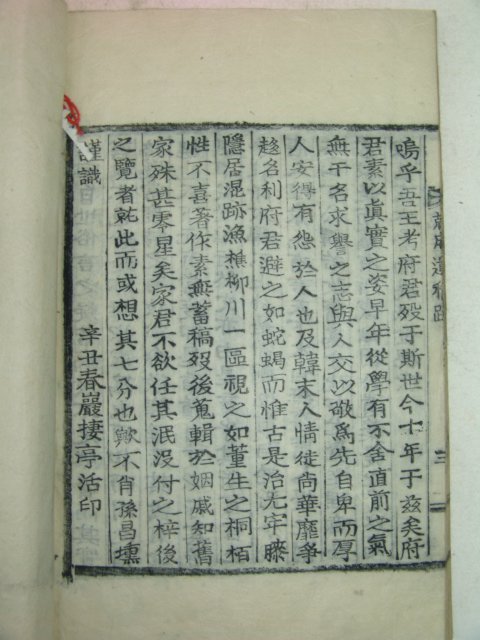 嗚乎吾王考府君歿于斯世今十年于玆矣府
君素以眞實之姿早年從學有不舍直前之氣
無干名求譽之志與人交以敬爲先自卑而厚
人安得有怨於人也及韓末人情徒尙華靡爭
趍名利府君避之如蛇蝎而惟古是治尢牢
隱居混跡漁樵柳川一區視之如董生之桐栢
性不喜著作素無蓄稿歿後蒐輯於姻戚知舊
家殊甚零星矣家君不欲任其泯没付之梓後
之覽者就此而或想其七分也歟不肖孫昌壎
謹識
辛丑春巖棲亭活印
遺稿跋
三